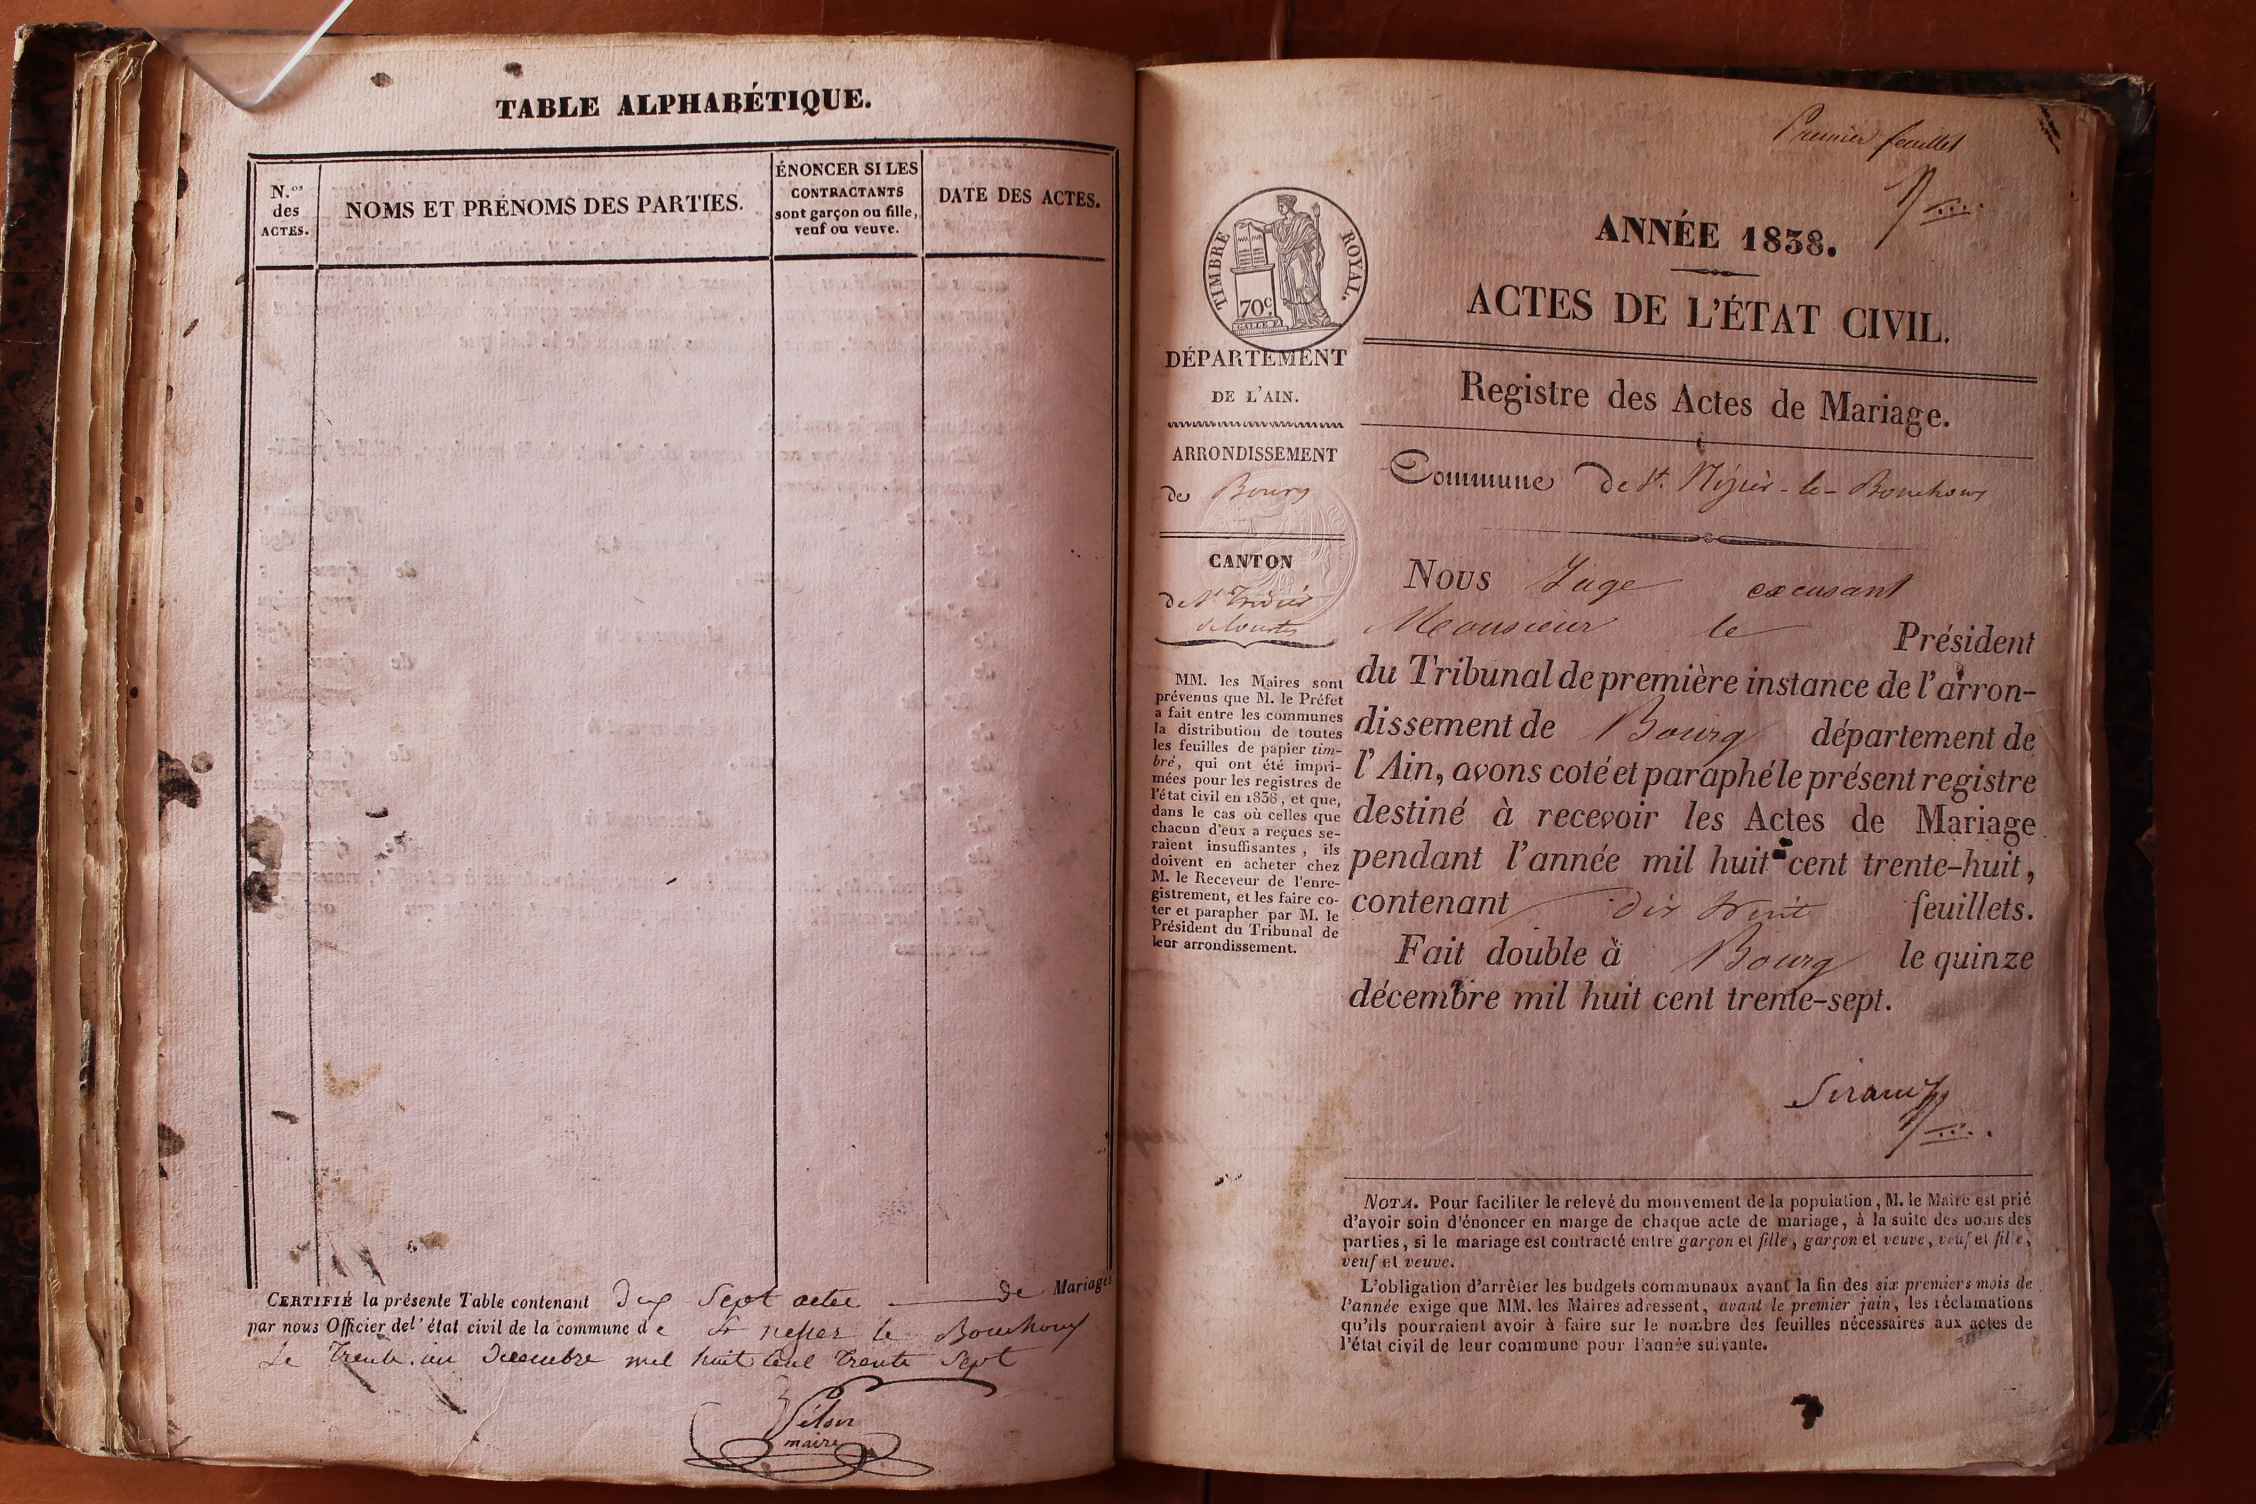 TABLE ALPHABÉTIQUE.
N.os
des
ACTES.
NOMS ET PRÉNOMS DES PARTIES.
ÉNONCER SI LES
CONTRACTANTS
sont garçon ou fille,
veuf ou veuve.
DATE DES ACTES.
CERTIFIÉ la présente Table contenant dix Sept actes de Mariages
par nous Officier de l'état civil de la commune de St nizier le Bouchoux
Le trente un Decembre mil huit cent trente Sept
maire
Premier feuillet
ANNÉE 1838.
ACTES DE L'ÉTAT CIVIL.
Registre des Actes de Mariage.
Commune de St. Nizier-le-Bouchoux
TIMBRE ROYAL.
70c
DÉPARTEMENT
DE L'AIN.
ARRONDISSEMENT
de Bourg
CANTON
de St Trivier
de Courtes
MM. les Maires sont
prévenus que M. le Préfet
a fait entre les communes
la distribution de toutes
les feuilles de papier tim-
bré, qui ont été impri-
mées pour les registres de
l'état civil en 1838, et que,
dans le cas où celles que
chacun d'eux a reçues se-
raient insuffisantes, ils
doivent en acheter chez
M. le Receveur de l'enre-
gistrement, et les faire co-
ter et parapher par M. le
Président du Tribunal de
leur arrondissement.
Nous Juge excusant
Monsieur le Président
du Tribunal de première instance de l'arron-
dissement de Bourg département de
l'Ain, avons coté et paraphé le présent registre
destiné à recevoir les Actes de Mariage
pendant l'année mil huit cent trente-huit,
contenant dix huit feuillets.
Fait double à Bourg le quinze
décembre mil huit cent trente-sept.
NOTA. Pour faciliter le relevé du mouvement de la population, M. le Maire est prié
d'avoir soin d'énoncer en marge de chaque acte de mariage, à la suite des noms des
parties, si le mariage est contracté entre garçon et fille, garçon et veuve, veuf et fille,
veuf et veuve.
L'obligation d'arrêter les budgets communaux avant la fin des six premiers mois de
l'année exige que MM. les Maires adressent, avant le premier juin, les réclamations
qu'ils pourraient avoir à faire sur le nombre des feuilles nécessaires aux actes de
l'état civil de leur commune pour l'année suivante.